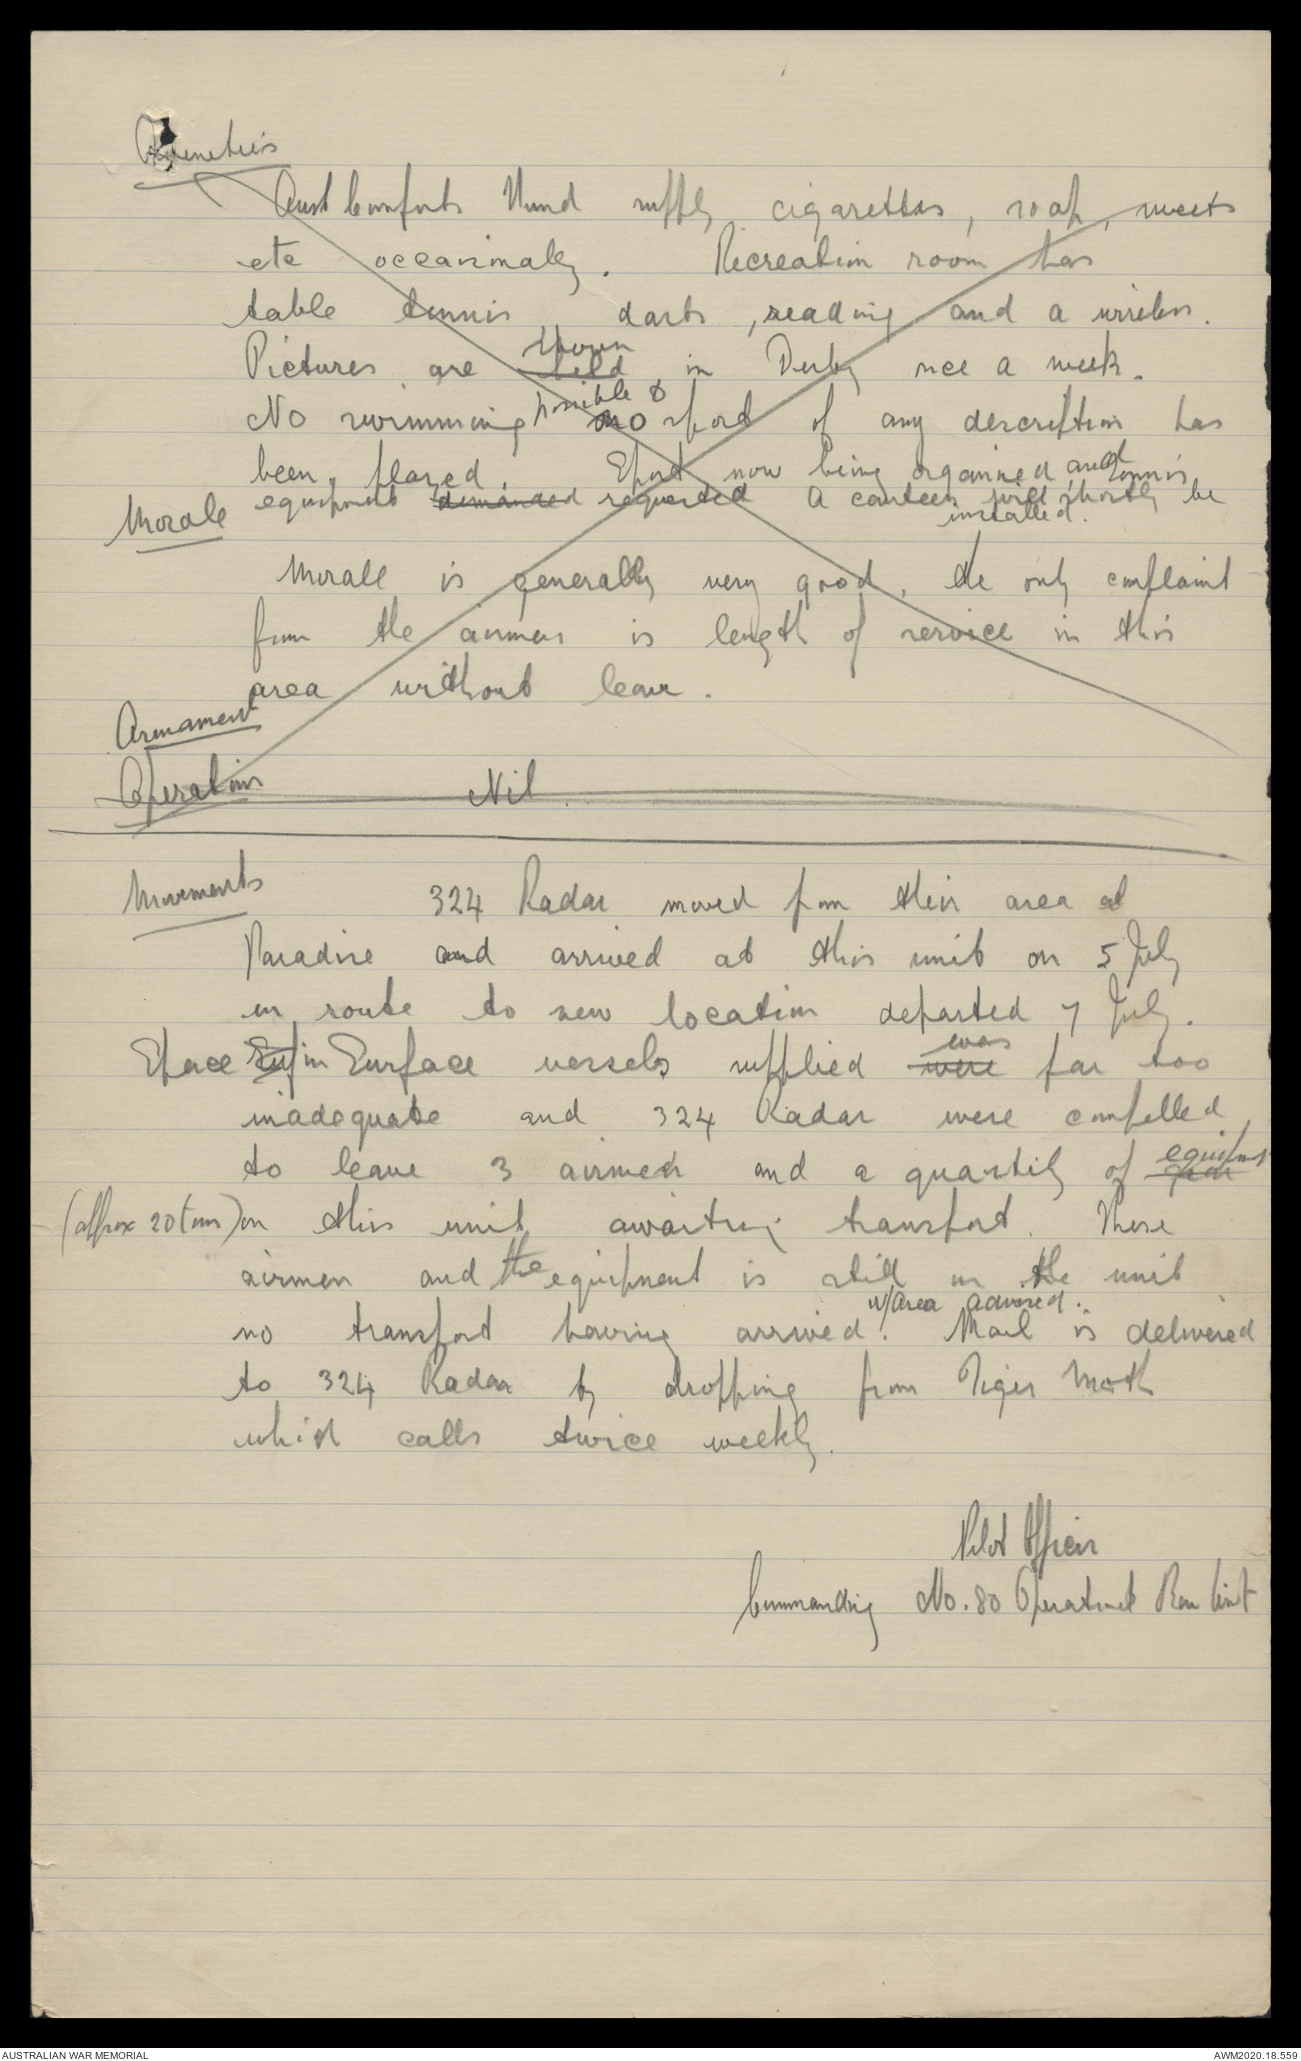 Amenities
Aust Comforts Fund supply cigarettes, soap, sweets
etc occasionally. Recreation room has
table tennis darts, reading and a wireless.
Pictures are held shown in Derby once a week.
No swimming possible & no sport of any description has
been played. Sport now being organised and tennis
equipment demanded requested A canteen will shortly be
installed.
Morale
Morale is generally very good, the only complaint
from the airmen is length of service in this
area without leave.
Armament
Operations Nil.
Movements 324 Radar moved from their area at
Paradise and arrived at this unit on 5 July
en route to new location departed 7 July.
Space in Surface vessels supplied were was far too
inadequate and 324 Radar were compelled
to leave 3 airmen and a quantity of gear equipment
(approx 20 tons) on this unit awaiting transport. These
airmen and the equipment is still on the unit
no transport having arrived. W/Area advised. Mail is delivered
to 324 Radar by dropping from Tiger Moth
which calls twice weekly.
Pilot Officer
Commanding No. 80 Operational Base Unit
AUSTRALIAN WAR MEMORIAL
AWM2020.18.559